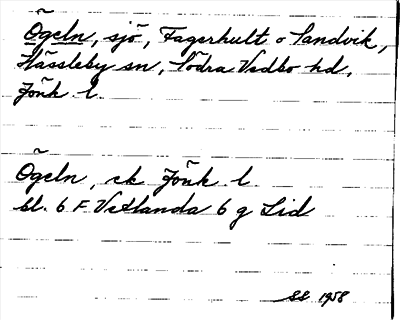 Ögeln, sjö, Fagerhult o Sandvik,
Hässleby sn, Södra Vedbo hd,
Jönk. l.
Ögeln, ek Jönk. l.
bl. 6 F Vetlanda 6 g Lid
SS 1958